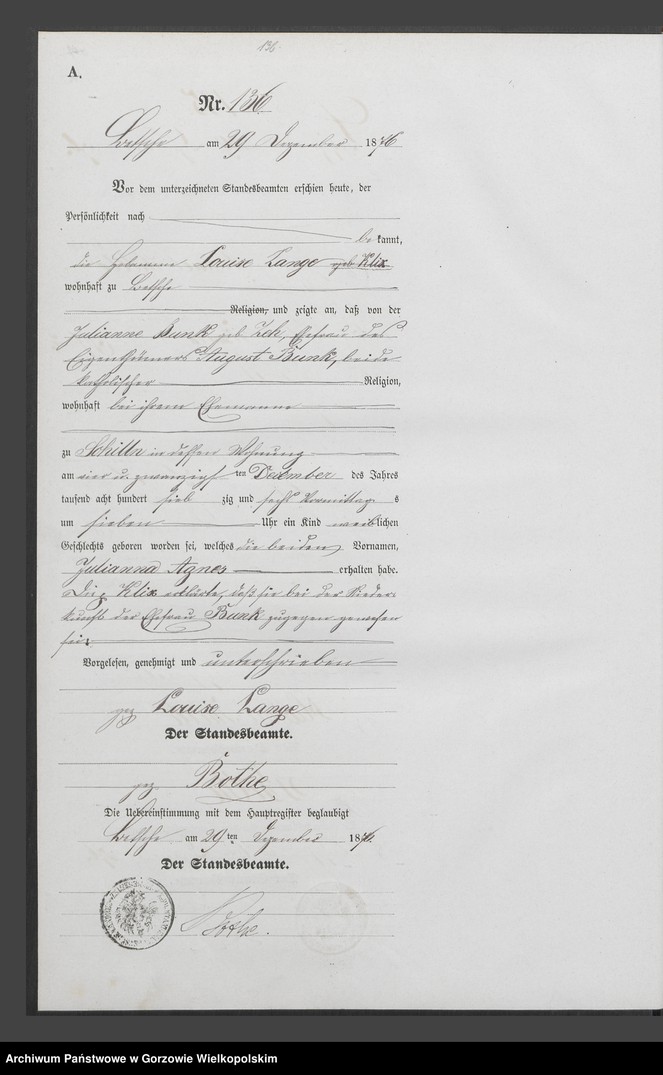 136
A.
Nr. 136
Betsche am 29 Dezember 1876
Vor dem unterzeichneten Standesbeamten erschien heute, der
Persönlichkeit nach
bekannt,
die Hebamme Louise Lange geb Klix
wohnhaft zu Betsche
Religion, und zeigte an, daß von der
Julianne Bunk geb Zeh, Ehefrau des
Eigenthümers August Bunk, beide
katholischer Religion,
wohnhaft bei ihrem Ehemanne
zu Schilln in dessen Wohnung
am vier u. zwanzigsten Dezember des Jahres
tausend acht hundert siebzig und sechs Vormittags
um sieben Uhr ein Kind weiblichen
Geschlechts geboren worden sei, welches die beiden Vornamen,
Julianna Agnes erhalten habe.
Die Klix erklärte, daß sie bei der Nieder-
kunft der Ehefrau Bunk zugegen gewesen
sei.
Vorgelesen, genehmigt und unterschrieben
gez Louise Lange
Der Standesbeamte.
gez. Bothe
Die Uebereinstimmung mit dem Hauptregister beglaubigt
Betsche am 29ten Dezember 1876.
Der Standesbeamte.
Bothe.
Archiwum Państwowe w Gorzowie Wielkopolskim